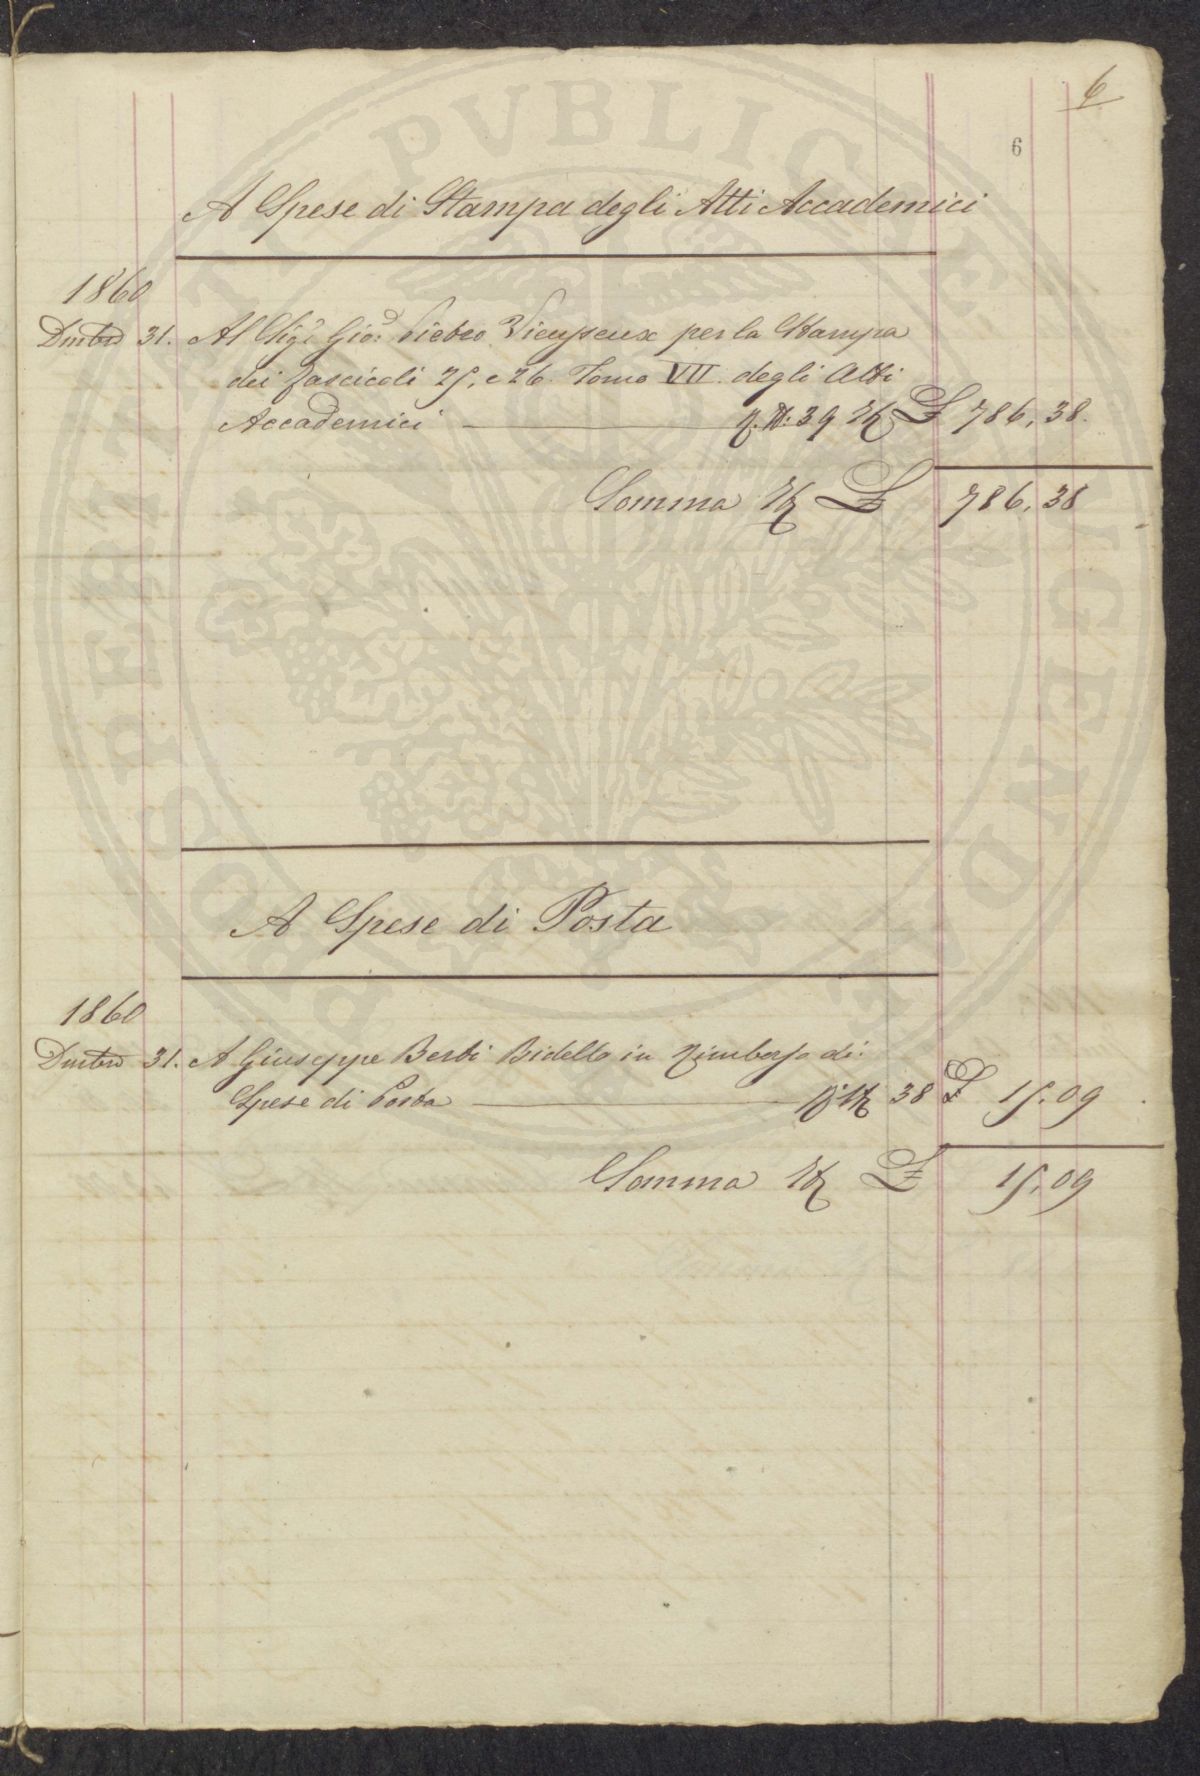 6
6
A Spese di Stampa degli Atti Accademici
1860
Dmbre 31. Al Sigr Giov: Pietro Vieusseux per la Stampa
dei fascicoli 25, e 26. Tomo VII. degli Atti
Accademici 39 £ 786, 38.
Somma £ 786, 38
A Spese di Posta
1860
Dmbre 31. A Giuseppe Berti Bidello in rimborso di
Spese di Posta 38 £ 15. 09
Somma £ 15. 09
PROSPERITATI PVBLICAE AVGENDAE